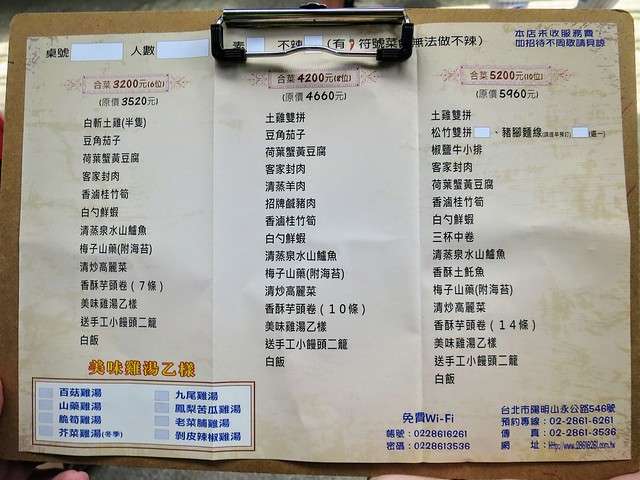 桌號 人數 素 不辣 (有 符號菜 無法做不辣)
本店未收服務費
如招待不周敬請見諒
合菜3200元(6位)
(原價3520元)
白斬土雞(半隻)
豆角茄子
荷葉蟹黃豆腐
客家封肉
香滷桂竹筍
白勺鮮蝦
清蒸泉水山鱸魚
梅子山藥(附海苔)
清炒高麗菜
香酥芋頭卷(7條)
美味雞湯乙樣
送手工小饅頭二籠
白飯
合菜4200元(8位)
(原價4660元)
土雞雙拼
豆角茄子
荷葉蟹黃豆腐
客家封肉
清蒸羊肉
招牌鹹豬肉
香滷桂竹筍
白勺鮮蝦
清蒸泉水山鱸魚
梅子山藥(附海苔)
清炒高麗菜
香酥芋頭卷(10條)
美味雞湯乙樣
送手工小饅頭二籠
白飯
合菜5200元(10位)
(原價5960元)
土雞雙拼
松竹雙拼 、豬腳麵線 (選一)
椒鹽牛小排
客家封肉
荷葉蟹黃豆腐
香滷桂竹筍
白勺鮮蝦
三杯中卷
清蒸泉水山鱸魚
香酥土魠魚
梅子山藥(附海苔)
清炒高麗菜
香酥芋頭卷(14條)
美味雞湯乙樣
送手工小饅頭二籠
白飯
美味雞湯乙樣
百菇雞湯
山藥雞湯
脆筍雞湯
芥菜雞湯(冬季)
九尾雞湯
鳳梨苦瓜雞湯
老菜脯雞湯
剝皮辣椒雞湯
免費Wi-Fi
帳號:0228616261
密碼:0228613536
台北市陽明山永公路546號
預約專線:02-2861-6261
傳 真:02-2861-3536
網 址:http://www.28616261.com.tw